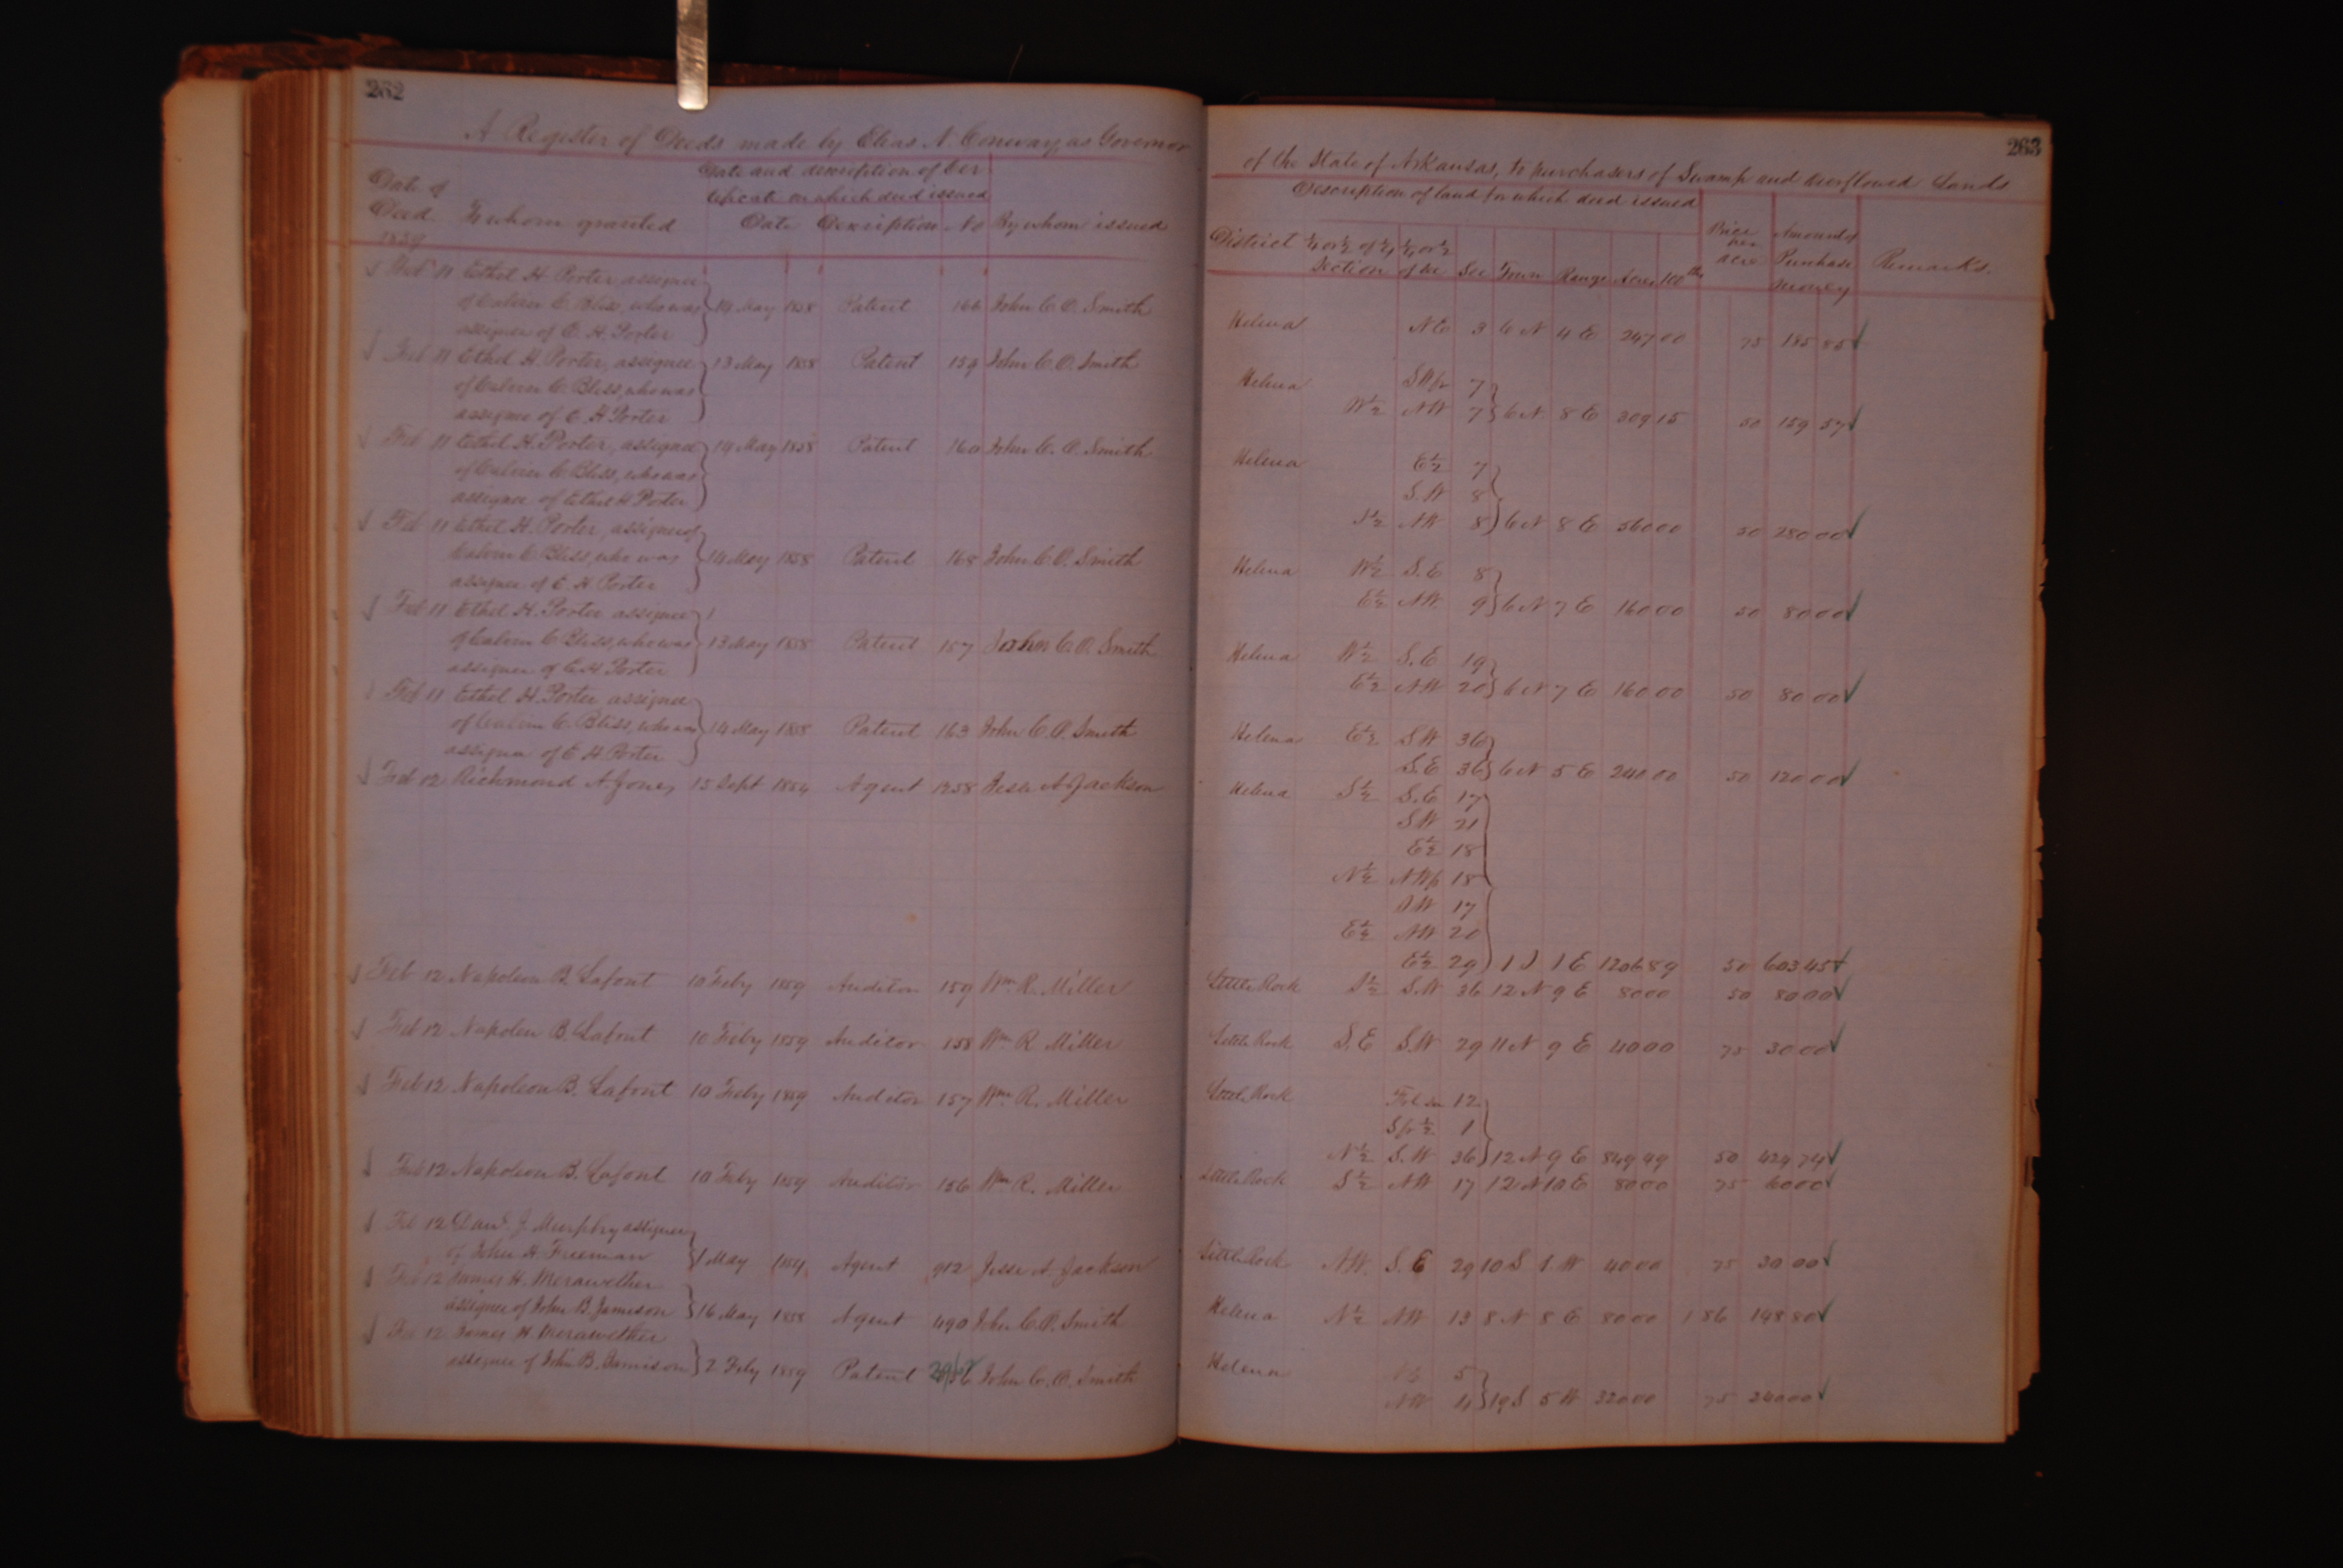 262
A Register of Deeds made by Elias N. Conway, as Governor
Date and description of Cer
tificate on which deed issued
Date of
Deed To whom granted Date Description No By whom issued
1859
Feb 11 Ethel H. Porter, assignee
of Calvin C. Bliss, who was 14 May 1858 Patent 166 John C. O. Smith
assignee of E. H. Porter
Feb 11 Ethel H. Porter, assignee 13 May 1858 Patent 159 John C. O. Smith
of Calvin C. Bliss, who was
assignee of E. H Porter
Feb 11 Ethel H. Porter, assignee 14 May 1858 Patent 160 John C. O. Smith
of Calvin C. Bliss, who was
assignee of Ethel H Porter
Feb 11 Ethel H. Porter, assignee of
Calvin C Bliss, who was 14 May 1858 Patent 168 John C. O. Smith
assignee of E H Porter
Feb 11 Ethel H. Porter assignee
of Calvin C. Bliss, who was 13 May 1858 Patent 157 John C. O. Smith
assignee of E H Porter
Feb 11 Ethel H. Porter assignee
of Calvin C. Bliss, who was 14 May 1858 Patent 163 John C. O. Smith
assignee of E H Porter
Feb 12 Richmond A. Jones 15 Sept 1854 Agent 1258 Jesse A. Jackson
Feb 12 Napoleon B. Lafont 10 Feby 1859 Auditor 159 Wm R. Miller
Feb 12 Napoleon B. Lafont 10 Feby 1859 Auditor 158 Wm R Miller
Feb 12 Napoleon B. Lafont 10 Feby 1859 Auditor 157 Wm R. Miller
Feb 12 Napoleon B. Lafont 10 Feby 1859 Auditor 156 Wm R. Miller
Feb 12 Danl. J. Murphy assignee
of John H. Freeman 1 May 1854 Agent 912 Jesse A. Jackson
Feb 12 James H. Merawether
assignee of John B. Jamison 16 May 1858 Agent 490 John C. O. Smith
Feb 12 James H. Merawether
assignee of John B. Jamison 2 Feby 1859 Patent John C. O. Smith
263
of the State of Arkansas, to purchasers of Swamp and overflowed Lands
Description of land for which deed issued
District ¼ or ½ of ¼ ¼ or ½ Price per acre Amount of Purchase money Remarks.
Section of Sec Sec Town Range Acres 100ths
Helena NE 3 6 N 4 E 247 00 75 185 85
Helena SWfr 7
W½ NW 7 6 N 8 E 309 15 50 159 57
Helena E½ 7
S. W 8
N½ NW 8 6 N 8 E 560 00 50 280 00
Helena W½ S. E 8
E½ NW. 9 6 N 7 E 160 00 50 80 00
Helena W½ S. E 19
E½ NW 20 6 N 7 E 160 00 50 80 00
Helena E½ SW 36
S. E 36 6 N 5 E 240 00 50 120 00
Helena S½ S. E 17
SW 21
E½ 18
N½ NWfr 18
SW 17
E½ NW 20
E½ 29 1 S 1 E 1206 89 50 603 45
Little Rock S½ S. W 36 12 N 9 E 80 00 50 80 00
Little Rock S. E S. W 29 11 N 9 E 40 00 75 30 00
Little Rock Frl sec 12
Sfr½ 1
N½ S. W 36 12 N 9 E 849 49 50 424 74
Little Rock S½ NW 17 12 N 10 E 80 00 75 60 00
Little Rock NW. S. E 29 10 S 1 W 40 00 75 30 00
Helena N½ NW 13 8 N 8 E 80 00 1 86 148 80
Helena 5
NW 4 19 S 5 W 320 00 75 240 00